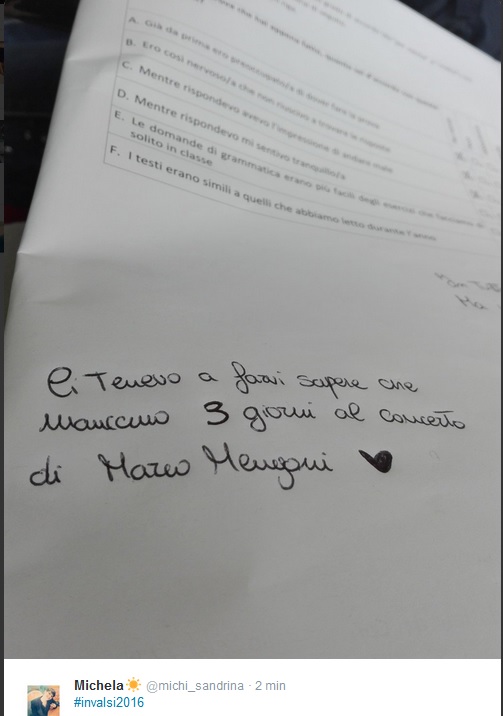 A. Già da prima ero preoccupato/a di dover fare la prova
B. Ero così nervoso/a che non riuscivo a trovare le risposte
C. Mentre rispondevo avevo l'impressione di andare male
D. Mentre rispondevo mi sentivo tranquillo/a
E. Le domande di grammatica erano più facili degli esercizi che facciamo di
solito in classe
F. I testi erano simili a quelli che abbiamo letto durante l'anno
Ci Tenevo a farvi sapere che
mancano 3 giorni al concerto
di Marco Mengoni
Michela @michi_sandrina · 2 min
#invalsi2016